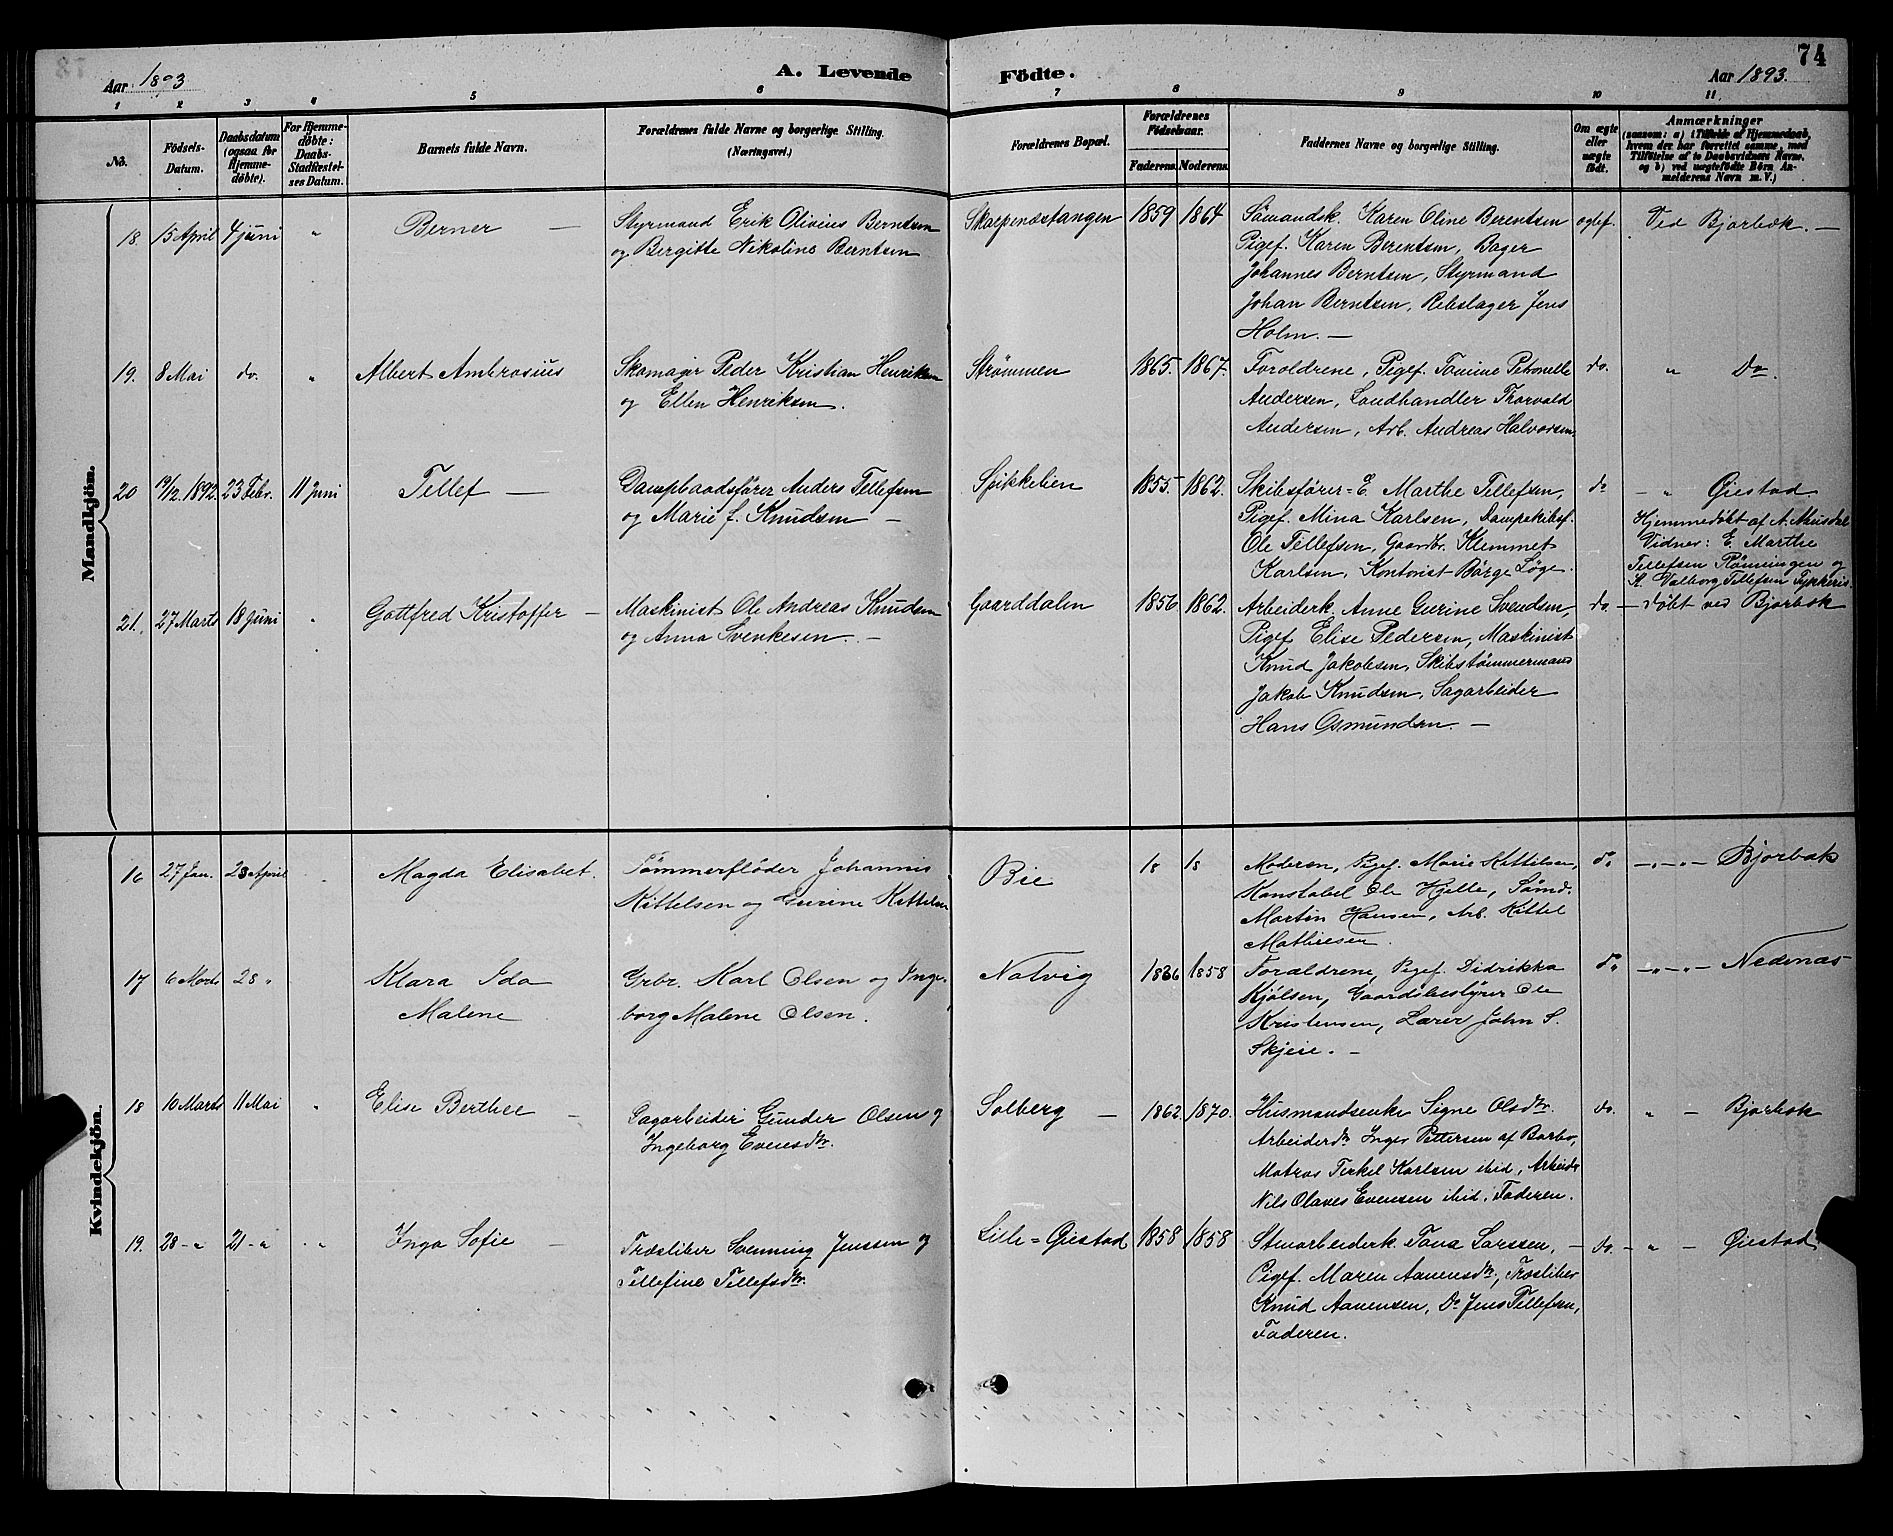 74
Aar 1893
A. Levende Födte.
Aar 1893.
1 2 3 4 5 6 7 8 9 10 11
No.
Födsels-
Datum.
Daabsdatum
(ogsaa for
Hjemme-
döbte).
For Hjemme-
døbte:
Daabs-
Stadfæstel-
ses Datum.
Barnets fulde Navn.
Forældrenes fulde Navne og borgerlige Stilling.
(Næringsvei.)
Forældrenes Bopæl.
Forældrenes
Födselsaar.
Faderens. Moderens.
Faddernes Navne og borgerlige Stilling.
Om ægte
eller
uægte
født.
Anmærkninger
(saasom: a) i Tilfælde af Hjemmedaab,
hvem der har forrettet samme, med
Tilføielse af to Daabsvidners Navne,
og b) ved uægtefødte Börn An-
melderens Navn m. V.)
Mandkjön.
18. 15 April 4 Juni " Berner —
Styrmand Erik Olivius Berntsen
og Bergitte Nikoline Berntsen
Skarpenæstangen 1859 1864
Sömandsk. Karen Oline Berentsen
Pigef. Karen Berentsen, Bager
Johannes Berntsen, Styrmand
Johan Berntsen, Rebslager Jens
Holm. —
egtef. Ved Bjorbæk. —
19. 8 Mai do. " Albert Ambrosius
Skomager Peder Kristian Henriksen
og Ellen Henriksen.
Strømmen 1865. 1867.
Foroldrene, Pigef. Tomine Petronelle
Andersen, Landhandler Thorvald
Andersen, Arb. Andreas Halvorsen.
do. " Do.
20 19/12 1892. 23 Febr. 11 Juni Tellef —
Dampbaadsfører Anders Tellefsen
og Marie f. Knudsen —
1855. 1862.
Skibsfører-E. Marthe Tellefsen,
Pigef. Mina Karlsen, Dampskibsf.
Ole Tellefsen, Gaardbr. Klemmet
Karlsen, Kontorist Börge Löge.
do — " Øiestad
Hjemmedöbt af A.
Vidner: E. Marthe
Tellefsen Rønningen og
Valborg Tellefsen
21. 27 Marts 18 Juni " Gottfred Kristoffer —
Maskinist Ole Andreas Knudsen
og Anna Svenkesen. —
Gaarddalen 1856 1862.
Arbeiderk. Anne Gurine Svendsen,
Pigef. Elise Pedersen, Maskinist
Knud Jakobsen, Skibstömmermand
Jakob Knudsen, Sagarbeider
Hans Osmundsen. —
do. — döbt ved Bjorbæk
Kvindekjön.
16 27 Jan. 23 April " Magda Elisabet.
Tömmerflöder Johannis
Kittelsen og Gurine Kittelsen
Bie 18 18
Moderen, Pigef. Marie Kittilsen,
Konstabel Ole Hjelle, Sömd.
Martin Hansen, Arb. Kittel
Mathiesen.
do —"—"— Bjorbæk
17 6 Marts 28 " Klara Ida
Malene
Grbr. Karl Olsen og Inge-
borg Malene Olsen.
Natvig 1836 1858
Forældrene, Pigef. Didrikka
Kjölsen, Gaardsbestyrer Ole
Kristensen, Lærer John S.
Skjeie. —
do —"—"— Nedenæs
18 10 Marts 11 Mai " Elise Berthee —
Sagarbeider Gunder Olsen og
Ingeborg Evensdtr.
Solberg — 1862. 1870.
Husmandsenke Signe Olsdtr.
Arbeiderdtr Inger Pettersen af Barbo,
Matros Terkel Karlsen ibid, Arbeider
Nils Olaves Evensen ibid. Faderen.
do. " — Bjorbæk
19. 28 - " 21 - " " Inga Sofie —
Træsliber Svenning Jenssen og
Tellefine Tellefsdtr.
Lille-Øiestad 1858 1858
Stuearbeiderk. Tana Larssen, —
Pigef. Maren Aanensdtr., Træsliber
Knud Aanensen, Do Jens Tellefsen,
Faderen.
do. — " — Øiestad